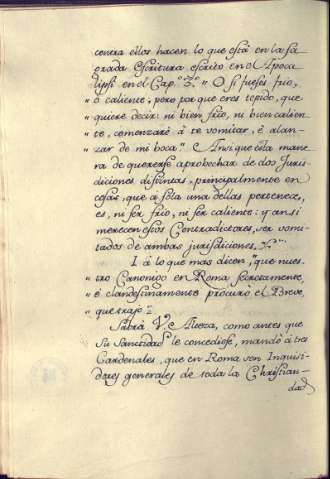 contra ellos hacen lo que está en la sa
grada escritura escrito en el Apoca
lipsi en el Cap.º 3.º " O si fueses frio,
ó caliente, pero por que eres tepido, que
quiere decir: ni bien frio, ni bien calien
te, comenzaré á te vomitar, é alan-
zar de mi boca" Ansi que esta mane
ra de quererse aprobechar de dos Juris
diciones distintas, principalmente en
cosas, que á sola una dellas pertenece,
es, ni ser frio, ni ser caliente: y ansi
merecen estos Contraditores, ser vomi
tados de ambas jurisdiciones,
I á lo que mas dicen, "que nues
tro Canonigo en Roma secretamente,
é clandestinamente procuró el Breve,
que trajo"
Sabrá V. Alteza, como antes que
Su Santidad le concediese, mandó á tres
Cardenales, que en Roma son Inquisi
dores generales de toda la Christian-
dad